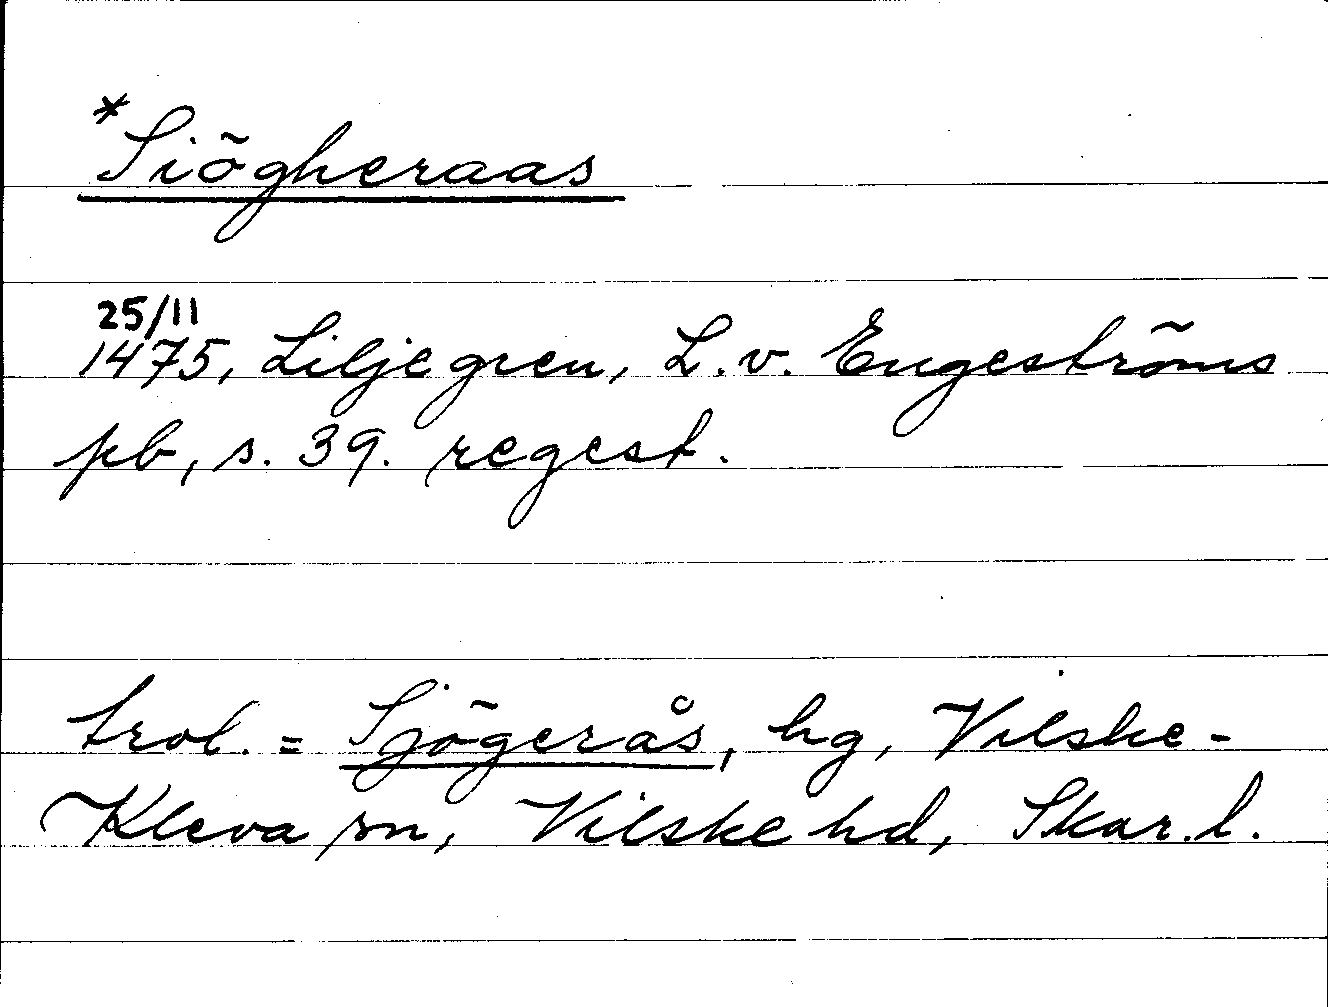 *Siögheraas
25/11
1475, Liljegren, L. v. Engeströms
pb, s. 39. regest.
trol. = Sjögerås, hg, Vilske-
Kleva sn, Vilske hd, Skar. l.